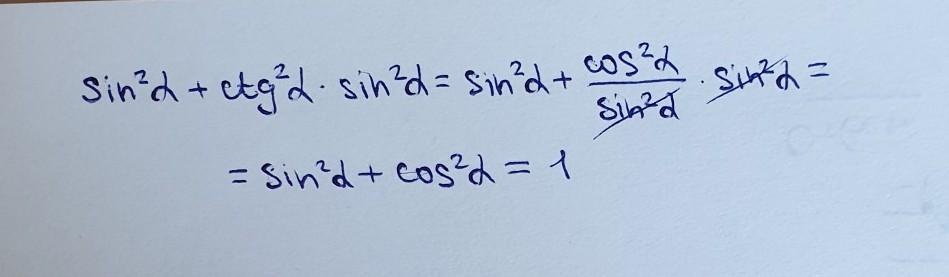 sin²α + ctg²α · sin²α = sin²α + cos²α / sin²α · sin²α =
= sin²α + cos²α = 1